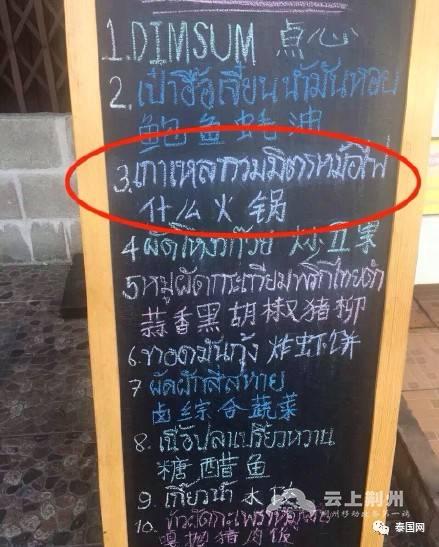 1.DIMSUM 点心
2.เป๋าฮื้อเจี๋ยนน้ำมันหอย
鲍鱼蚝油
3.เกาเหลารวมมิตรหม้อไฟ
什么火锅
4 ผัดโหงวก๊วย 炒 果
5.หมูผัดกระเทียมพริกไทยดำ
蒜香黑胡椒猪柳
6.ทอดมันกุ้ง 炸虾饼
7 ผัดผักสี่สหาย
卤综合蔬菜
8.เนื้อปลาเปรี้ยวหวาน
糖醋鱼
9.เกี๊ยวน้ำ 水饺
云上荆州
10.ข้าวผัดกะเพรา
嘎抛猪肉饭
泰国网